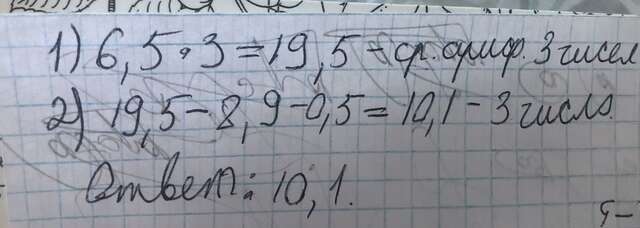 1) 6,5 • 3 = 19,5 - ср. ариф. 3 чисел
2) 19,5 - 8,9 - 0,5 = 10,1 - 3 число.
Ответ: 10,1.
5-